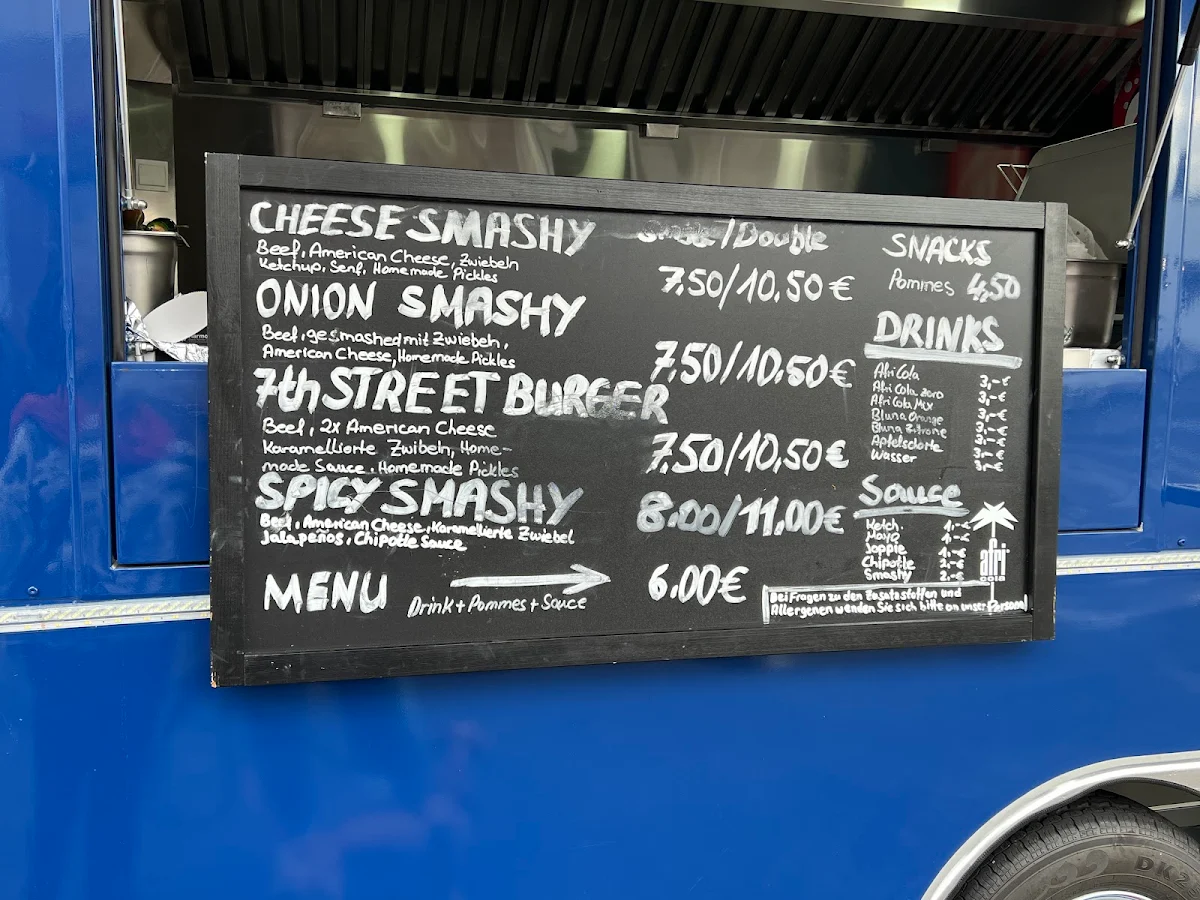 CHEESE SMASHY
/Double
Beef, American Cheese, Zwiebeln
Ketchup, Senf, Homemade Pickles
7.50/10.50 €
ONION SMASHY
Beef, gesmashed mit Zwiebeln,
American Cheese, Homemade Pickles
7.50/10.50€
7th STREET BURGER
Beef, 2x American Cheese
Karamellierte Zwibeln, Home-
made Sauce, Homemade Pickles
7.50/10.50€
SPICY SMASHY
Beef, American Cheese, Karamellierte Zwiebel
Jalapeños, Chipotle Sauce
8.00/11.00€
MENU
Drink + Pommes + Sauce
6.00€
SNACKS
Pommes 4,50
DRINKS
Afri Cola 3,-€
Afri Cola Zero 3,-€
Afri Cola Mix 3,-€
Bluna Orange 3,-€
Bluna Zitrone 3,-€
Apfelschorle 3,-€
Wasser 3,-€
Sauce
Ketch. 1,-€
Mayo 1,-€
Joppie 1,-€
Chipotle 2,-€
Smashy 2,-€
afri
cola
Bei Fragen zu den Zusatzstoffen und
Allergenen wenden Sie sich bitte an unser Personal